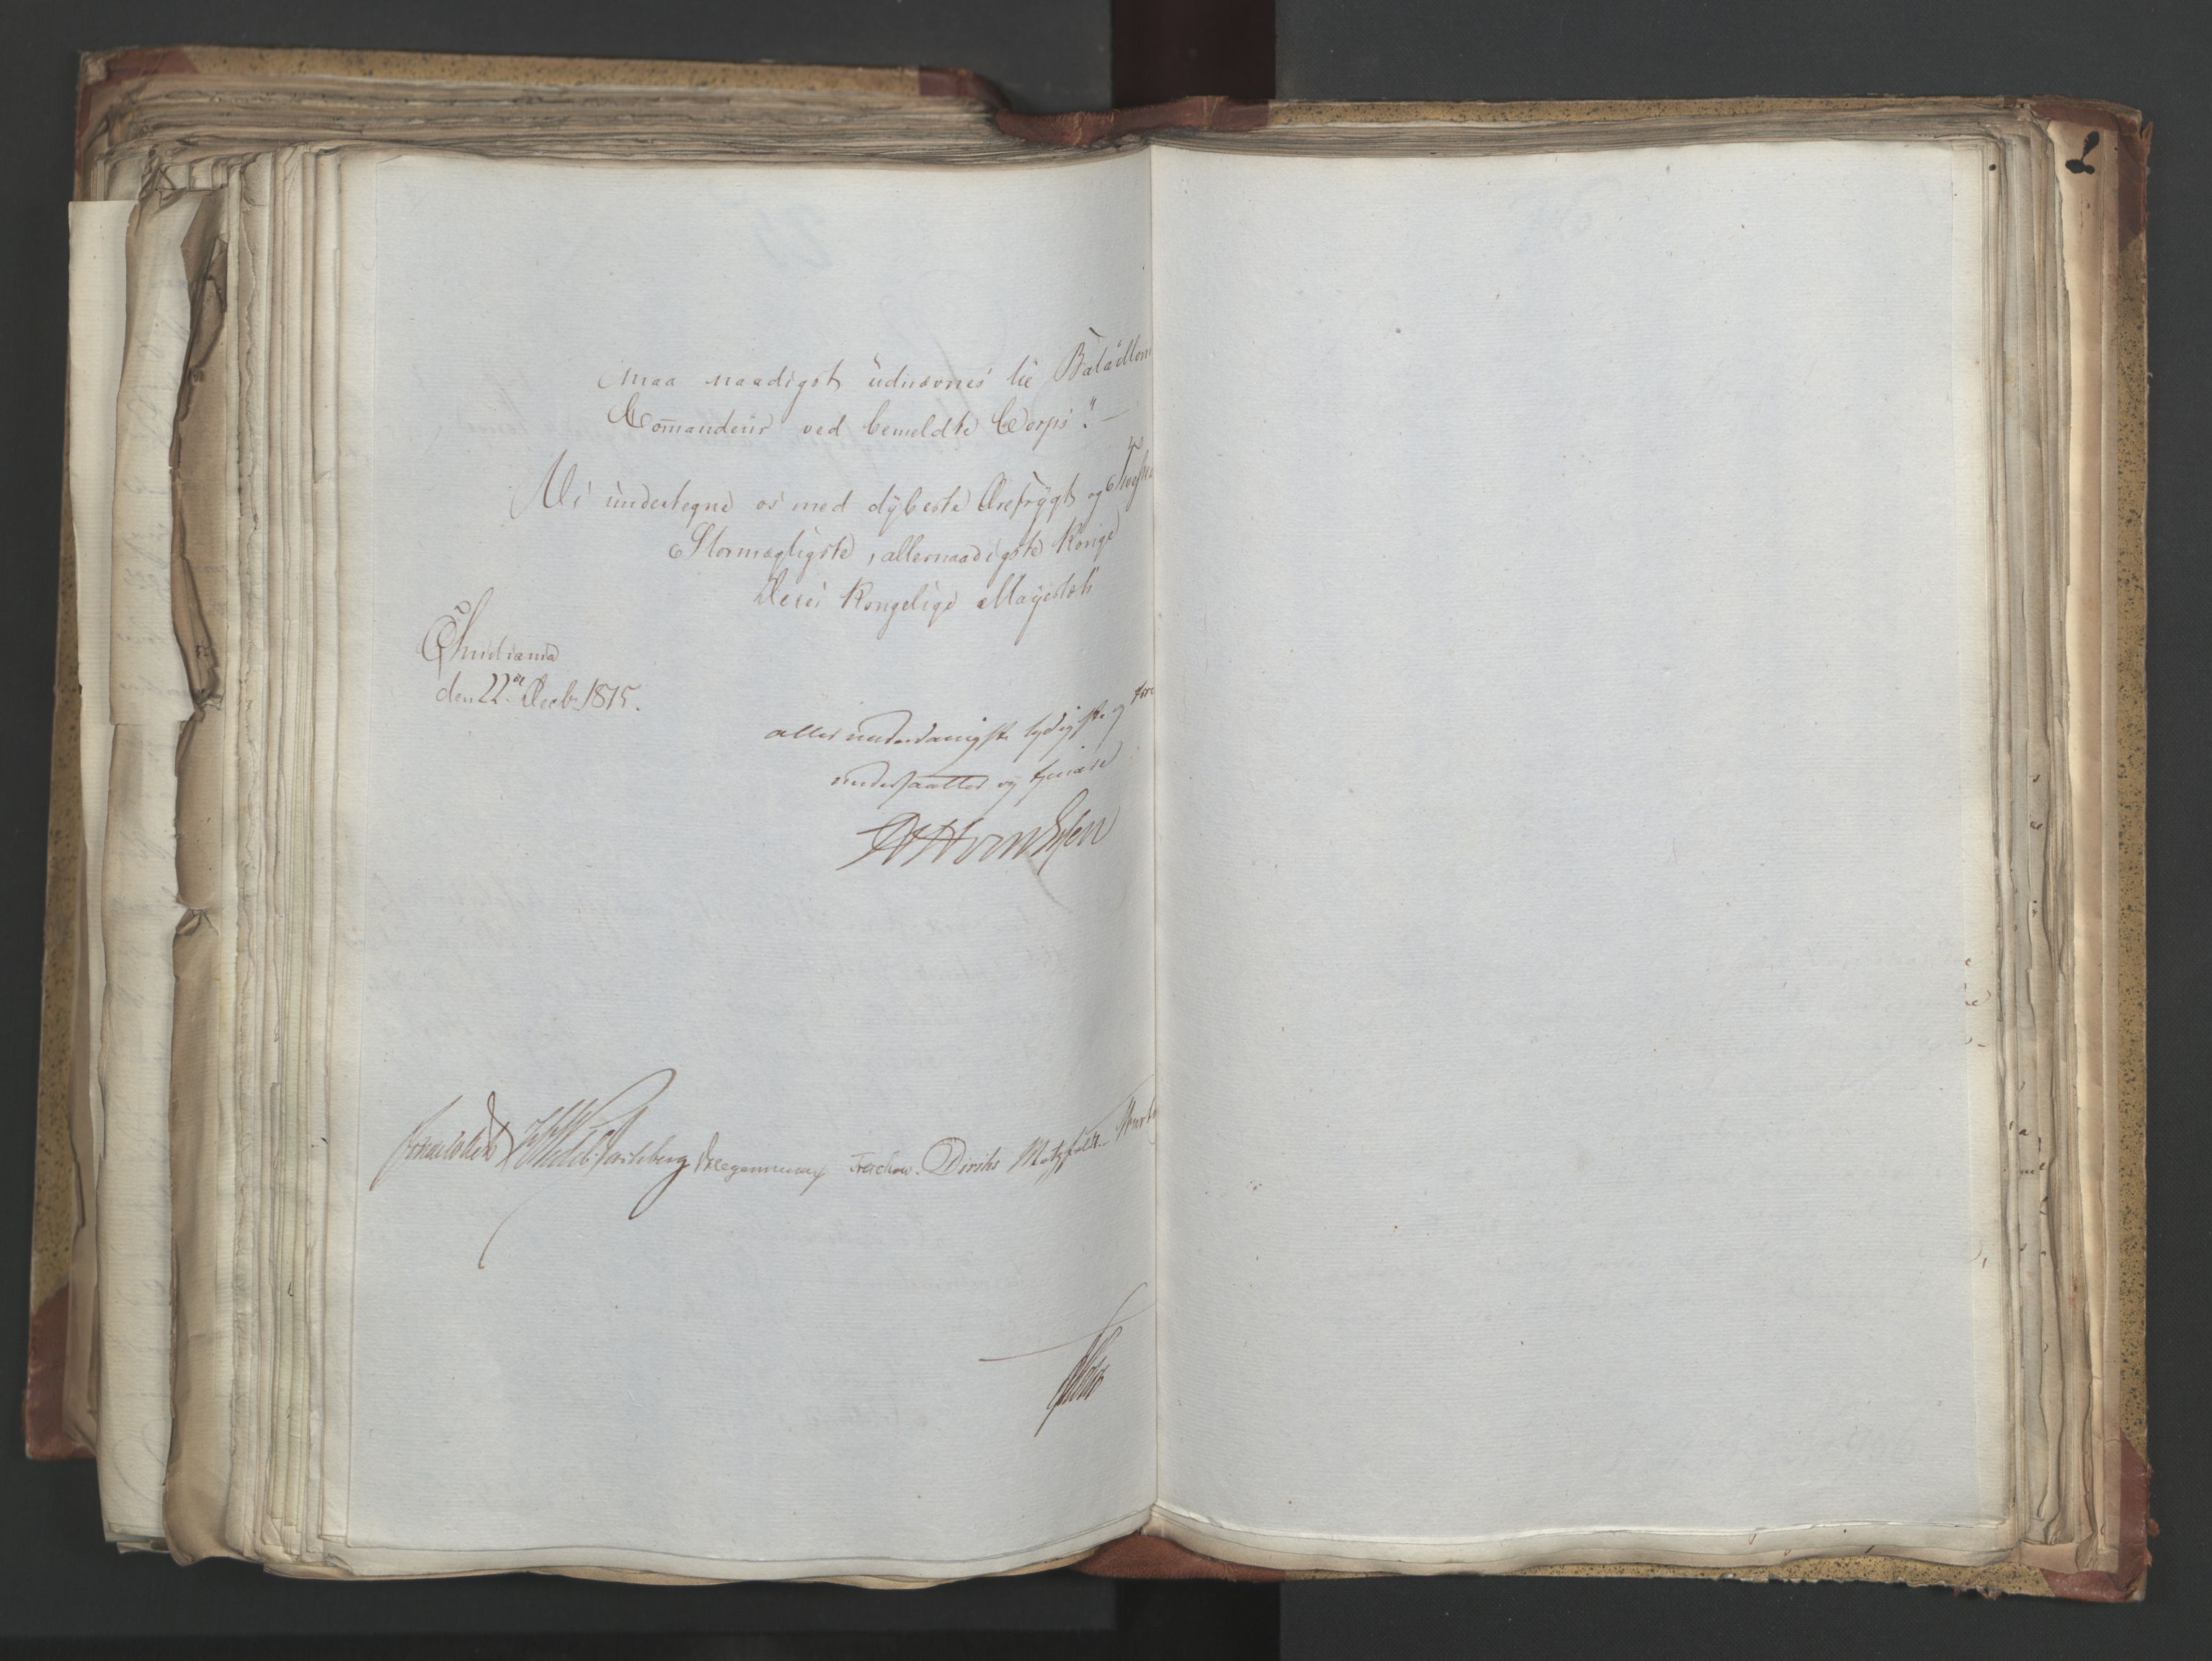 maa naadigst udnævnes til Bataillons
Commandeur ved bemeldte Corps".
Vi undertegne os med dybeste Ærefrygt og
Stormægtigste, allernaadigste Konge
Deres Kongelige Mayestæts
Christiania
den 22de Decb. 1815.
allerunderdanigste lydigste og
undersaatter og tjenere
Wedel-Jarlsberg Treschow. Diriks Motzfeldt.